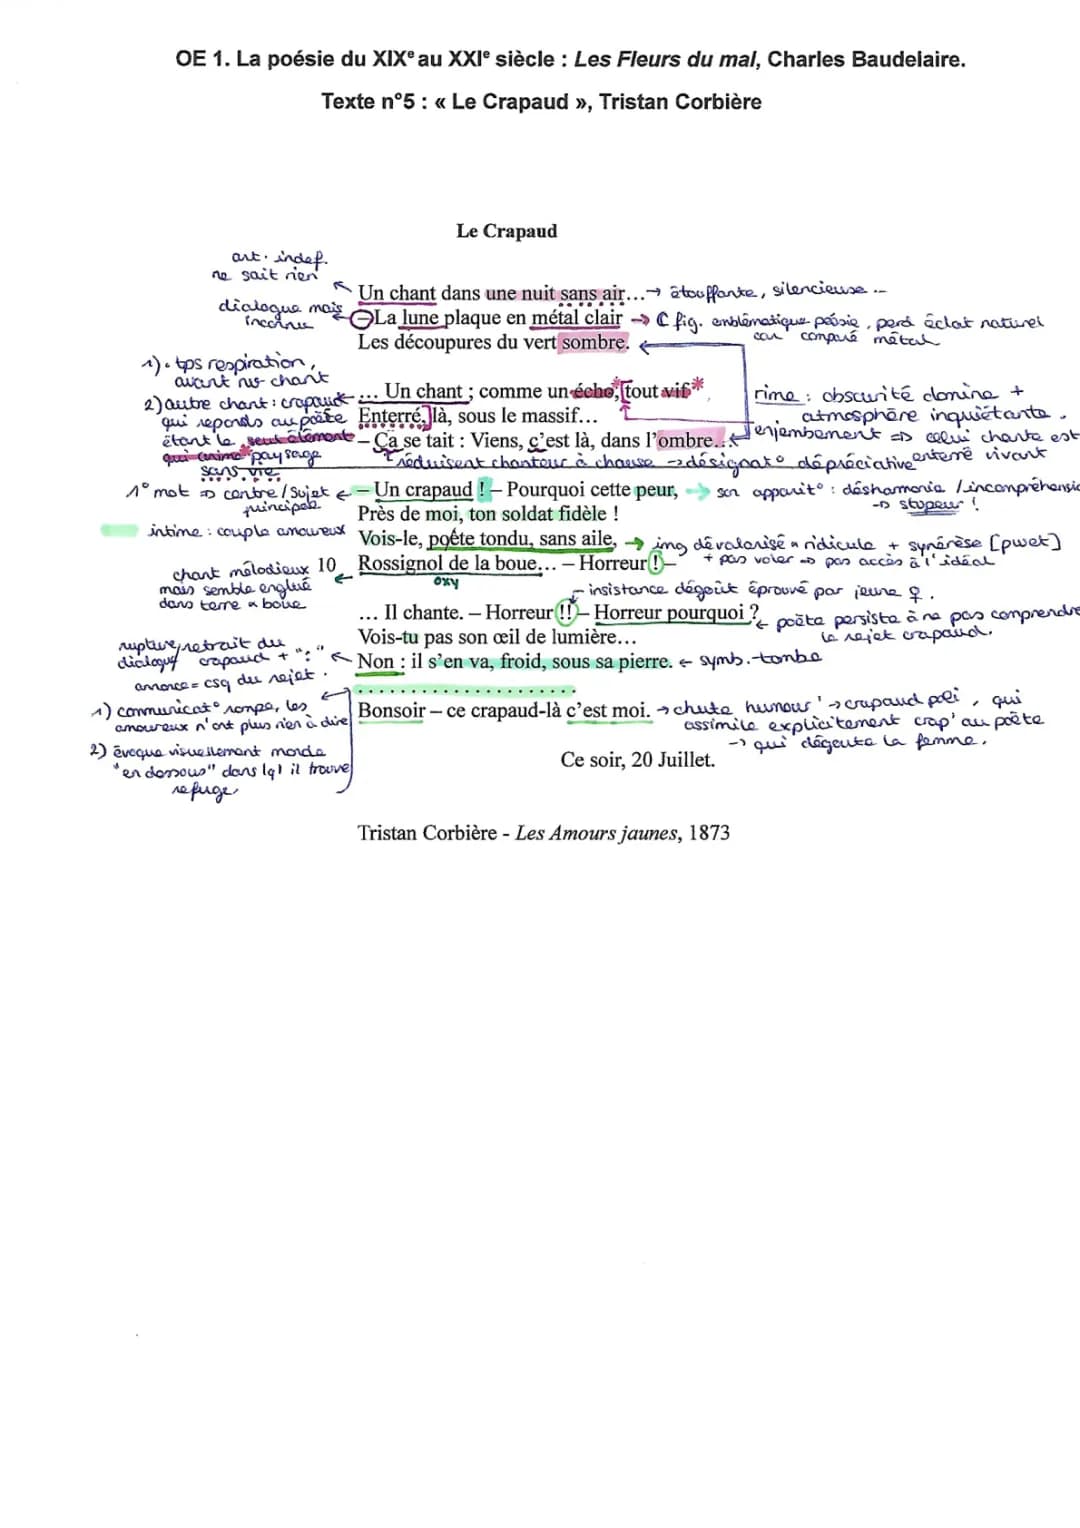 OE 1. La poésie du XIXᵉ au XXIᵉ siècle : Les Fleurs du mal, Charles Baudelaire.
Texte n°5 : « Le Crapaud », Tristan Corbière
Le Crapaud
art. indef.
ne sait rien
Un chant dans une nuit sans air... → étouffante, silencieuse ...
dialogue mais
inconnu
La lune plaque en métal clair → fig. emblématique poésie, perd éclat naturel
car comparé métal
Les découpures du vert sombre.
1). tps respiration,
avant nv chant
2) autre chant : crapaud
qui reponds au poète
étant le seul élément
qui anime paysage
sans vie
... Un chant ; comme un écho, tout vif*
Enterré, là, sous le massif...
– Ça se tait : Viens, c'est là, dans l'ombre...
rime : obscurité domine +
atmosphère inquiétante.
enjambement => celui chante est
enterré vivant
réduisent chanteur à chose → désignat° dépréciative
1° mot => centre / Sujet
principal
– Un crapaud ! – Pourquoi cette peur, → son apparit° : désharmonie / incompréhensio
→ stupeur !
Près de moi, ton soldat fidèle !
intime : couple amoureux
Vois-le, poète tondu, sans aile, → img dévalorisé & ridicule + synérèse [pwet]
+ pas voler => pas accès à l'idéal
chant mélodieux
mais semble englué
dans terre & boue
10
Rossignol de la boue... – Horreur ! –
oxy
insistance dégoût éprouvé par jeune ♀.
... Il chante. – Horreur !! – Horreur pourquoi ?
poète persiste à ne pas comprendre
le rejet crapaud.
Vois-tu pas son œil de lumière...
rupture, retrait du
dialogue crapaud + ":"
annonce = csq du rejet.
Non : il s'en va, froid, sous sa pierre. ← symb. tombe
. . . . . . . . . . . . . . . . . . . .
1) communicat° rompe, les
amoureux n'ont plus rien à dire
2) évoque visuellement monde
"en dessous" dans lql il trouve
refuge.
Bonsoir – ce crapaud-là c'est moi. → chute humour' → crapaud poli, qui
assimile explicitement crap' au poète
→ qui dégoute la femme.
Ce soir, 20 Juillet.
Tristan Corbière - Les Amours jaunes, 1873